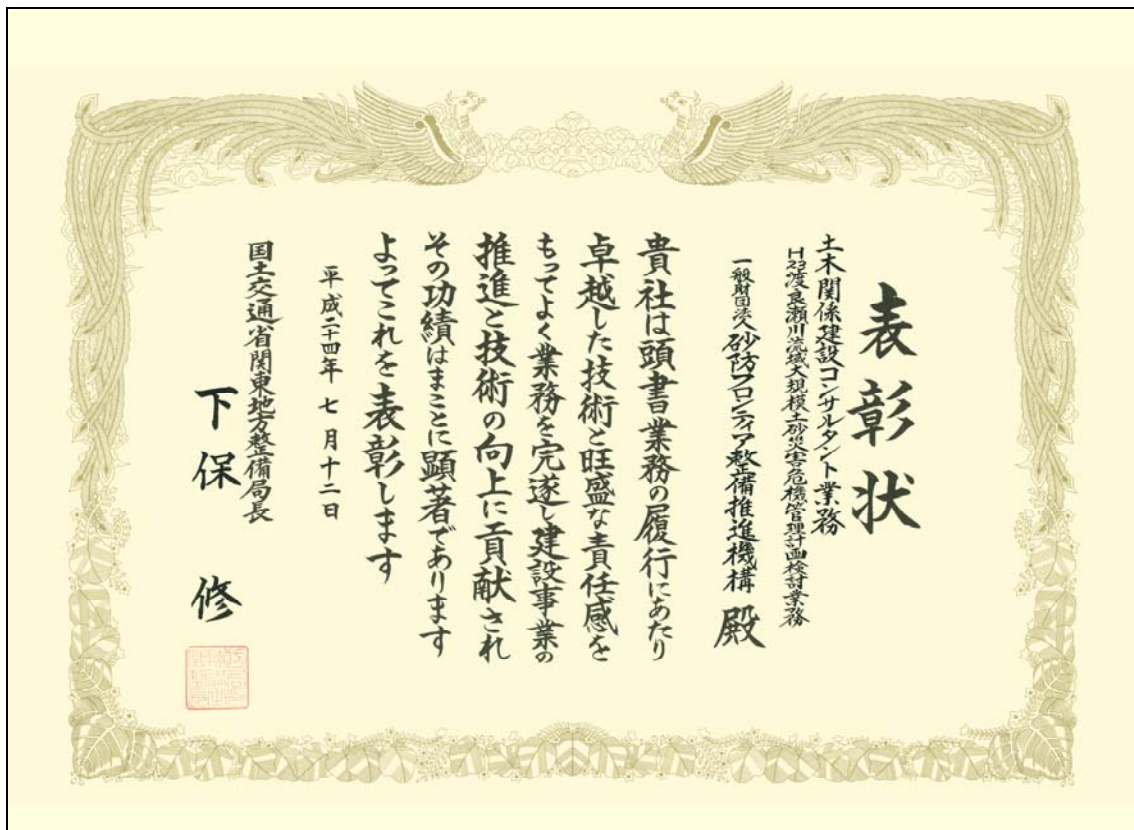 表彰状
土木関係建設コンサルタント業務
H23渡良瀬川流域大規模土砂災害危機管理計画検討業務
一般財団法人 砂防フロンティア整備推進機構 殿
貴社は頭書業務の履行にあたり
卓越した技術と旺盛な責任感を
もってよく業務を完遂し建設事業の
推進と技術の向上に貢献され
その功績はまことに顕著であります
よってこれを表彰します
平成二十四年七月十二日
国土交通省関東地方整備局長
下保 修